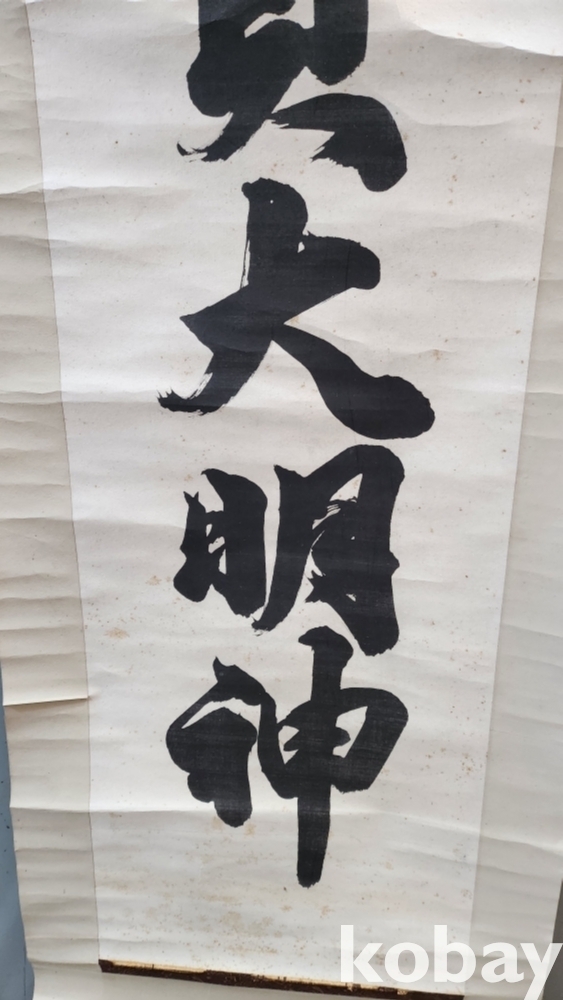 大明神
kobay